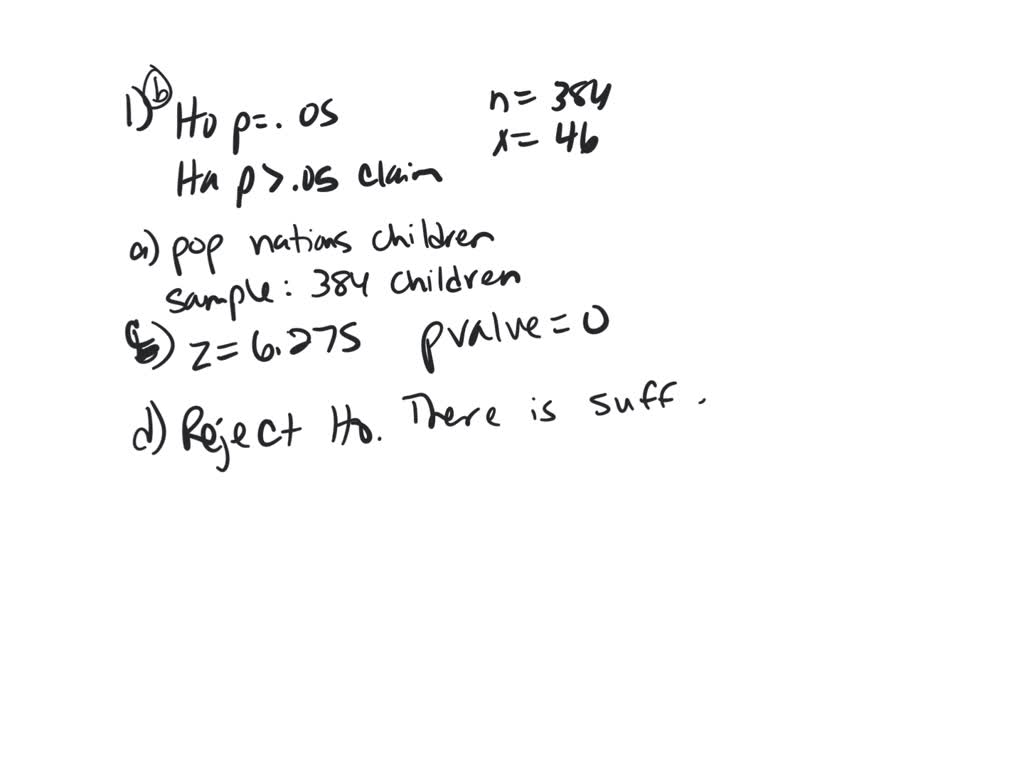 1) b Ho p=.05 n=384
x=46
Ha p>.05 claim
a) pop nations children
sample: 384 children
c) z=6.275 pvalue=0
d) Reject Ho. There is suff.